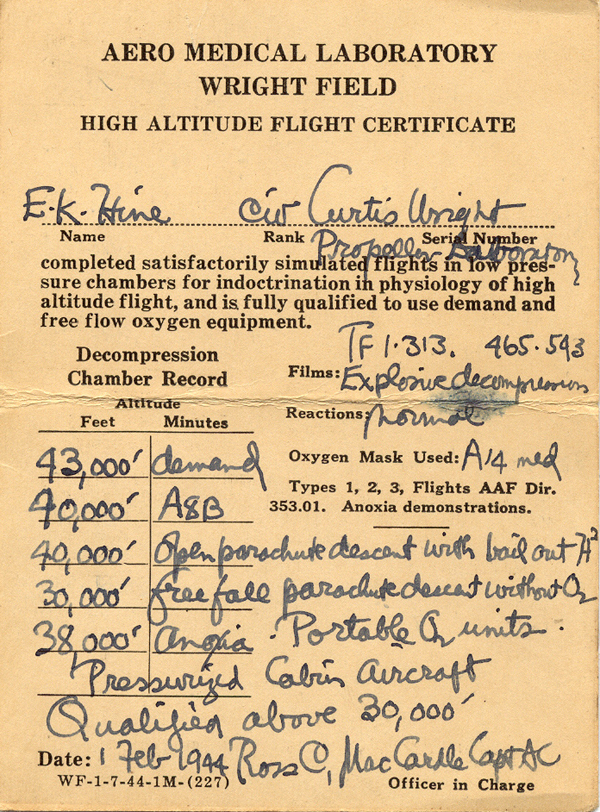 AERO MEDICAL LABORATORY
WRIGHT FIELD
HIGH ALTITUDE FLIGHT CERTIFICATE
E.K. Hine Civ Curtis Wright
Name Rank Serial Number
Propeller Laboratory
completed satisfactorily simulated flights in low pres-
sure chambers for indoctrination in physiology of high
altitude flight, and is fully qualified to use demand and
free flow oxygen equipment.
Decompression
Chamber Record
Altitude
Feet Minutes
43,000' demand
40,000' A8B
TF1·313. 465·593
Films: Explosive decompression
Reactions: Normal
Oxygen Mask Used: A14 med
Types 1, 2, 3, Flights AAF Dir.
353.01. Anoxia demonstrations.
40,000' open parachute descent with bail out
30,000' free fall parachute descent without O2
38,000' anoxia · Portable O2 units .
Pressurized Cabin Aircraft
Qualified above 30,000'
Date: 1 Feb 1944 Ross C, MacCardle Capt AC
WF-1-7-44-1M-(227) Officer in Charge